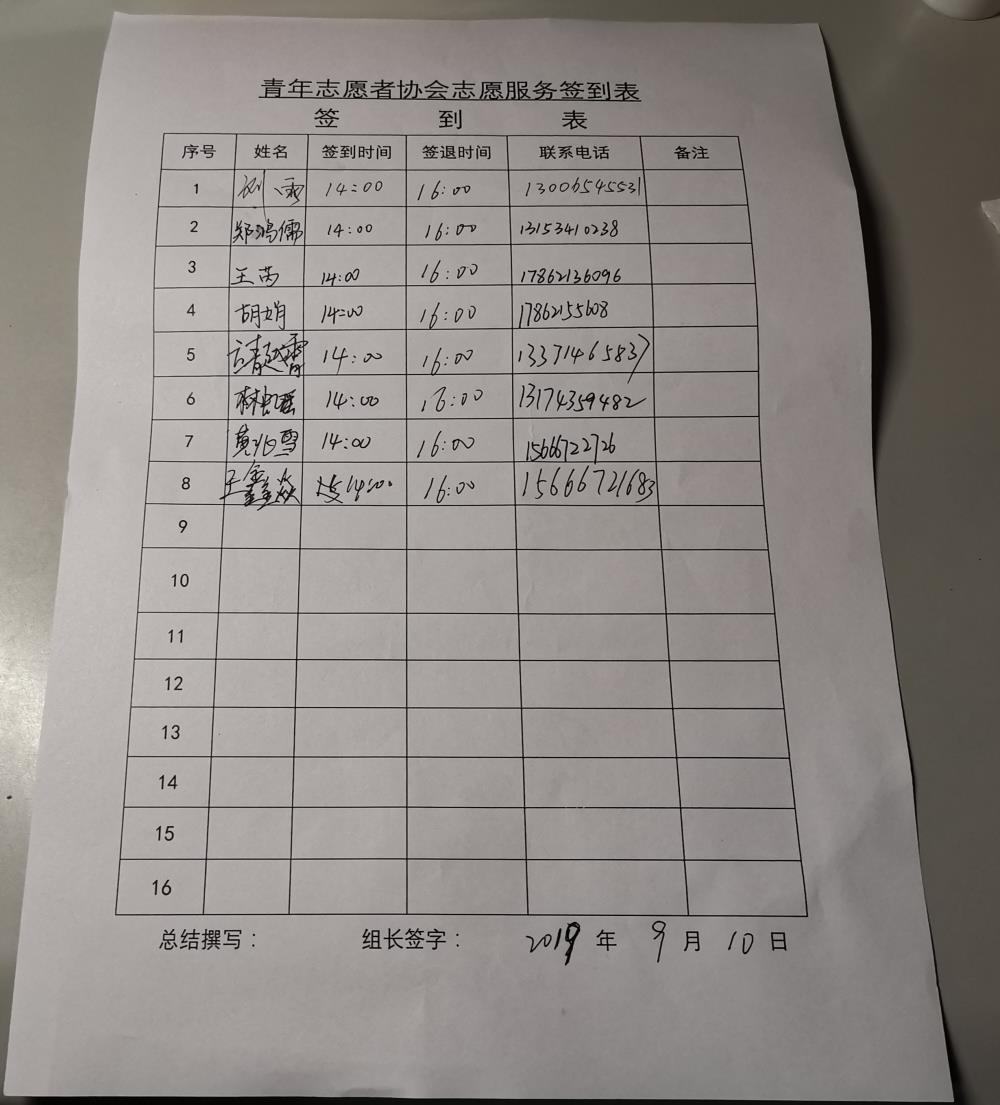 青年志愿者协会志愿服务签到表
签 到 表
序号 姓名 签到时间 签退时间 联系电话 备注
1 刘雪 14:00 16:00 13006545531
2 郑鸿儒 14:00 16:00 13153410238
3 王芮 14:00 16:00 17862136096
4 胡娟 14:00 16:00 17862155608
5 14:00 16:00 13371465837
6 林虹瑶 14:00 16:00 13174359482
7 黄兆雪 14:00 16:00 15666722726
8 王鑫焱 14:00 16:00 15666721683
9
10
11
12
13
14
15
16
总结撰写： 组长签字： 2019 年 9 月 10 日